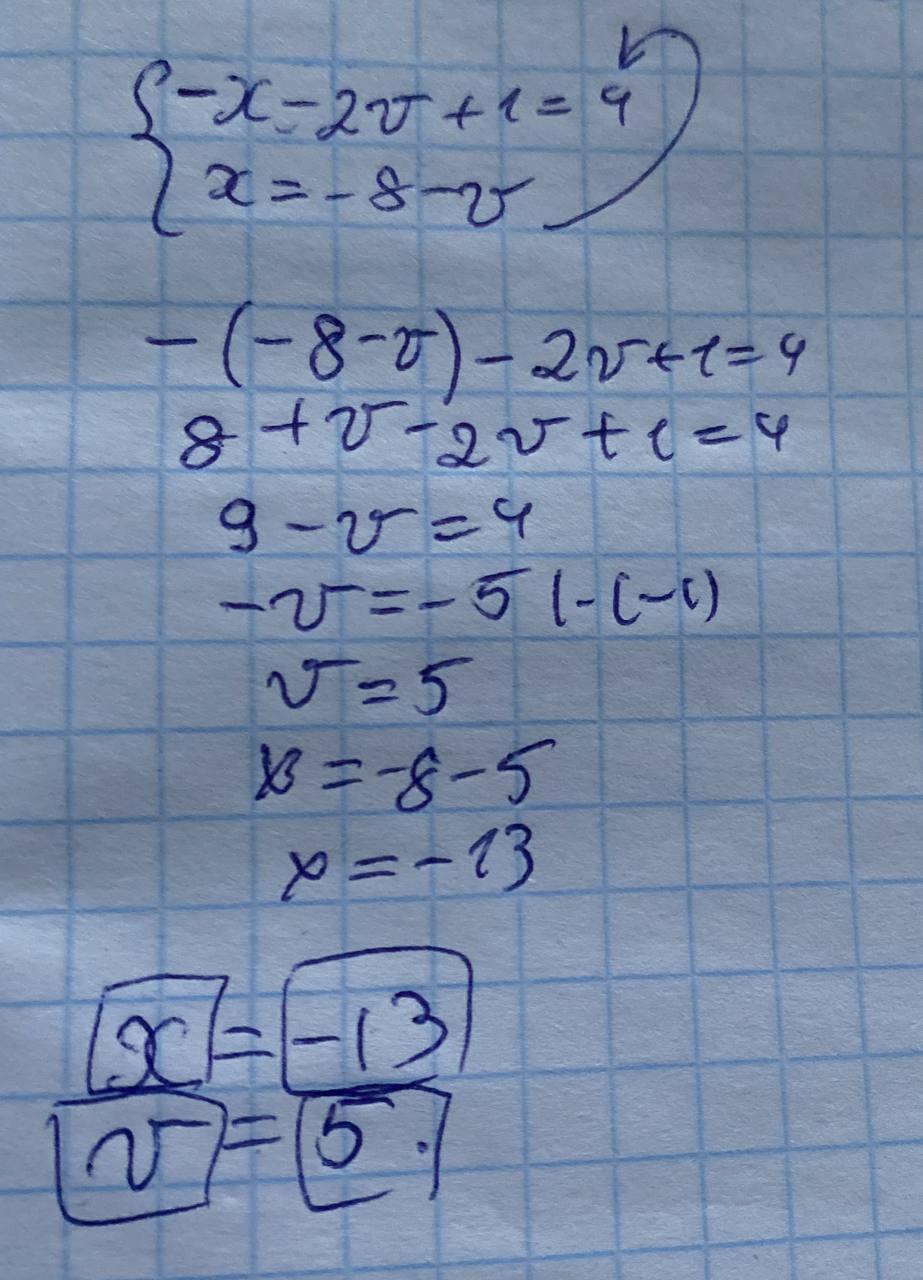 { -x - 2v + 1 = 4
x = -8 - v
-(-8 - v) - 2v + 1 = 4
8 + v - 2v + 1 = 4
9 - v = 4
-v = -5 |-(-1)
v = 5
x = -8 - 5
x = -13
x = -13
v = 5.